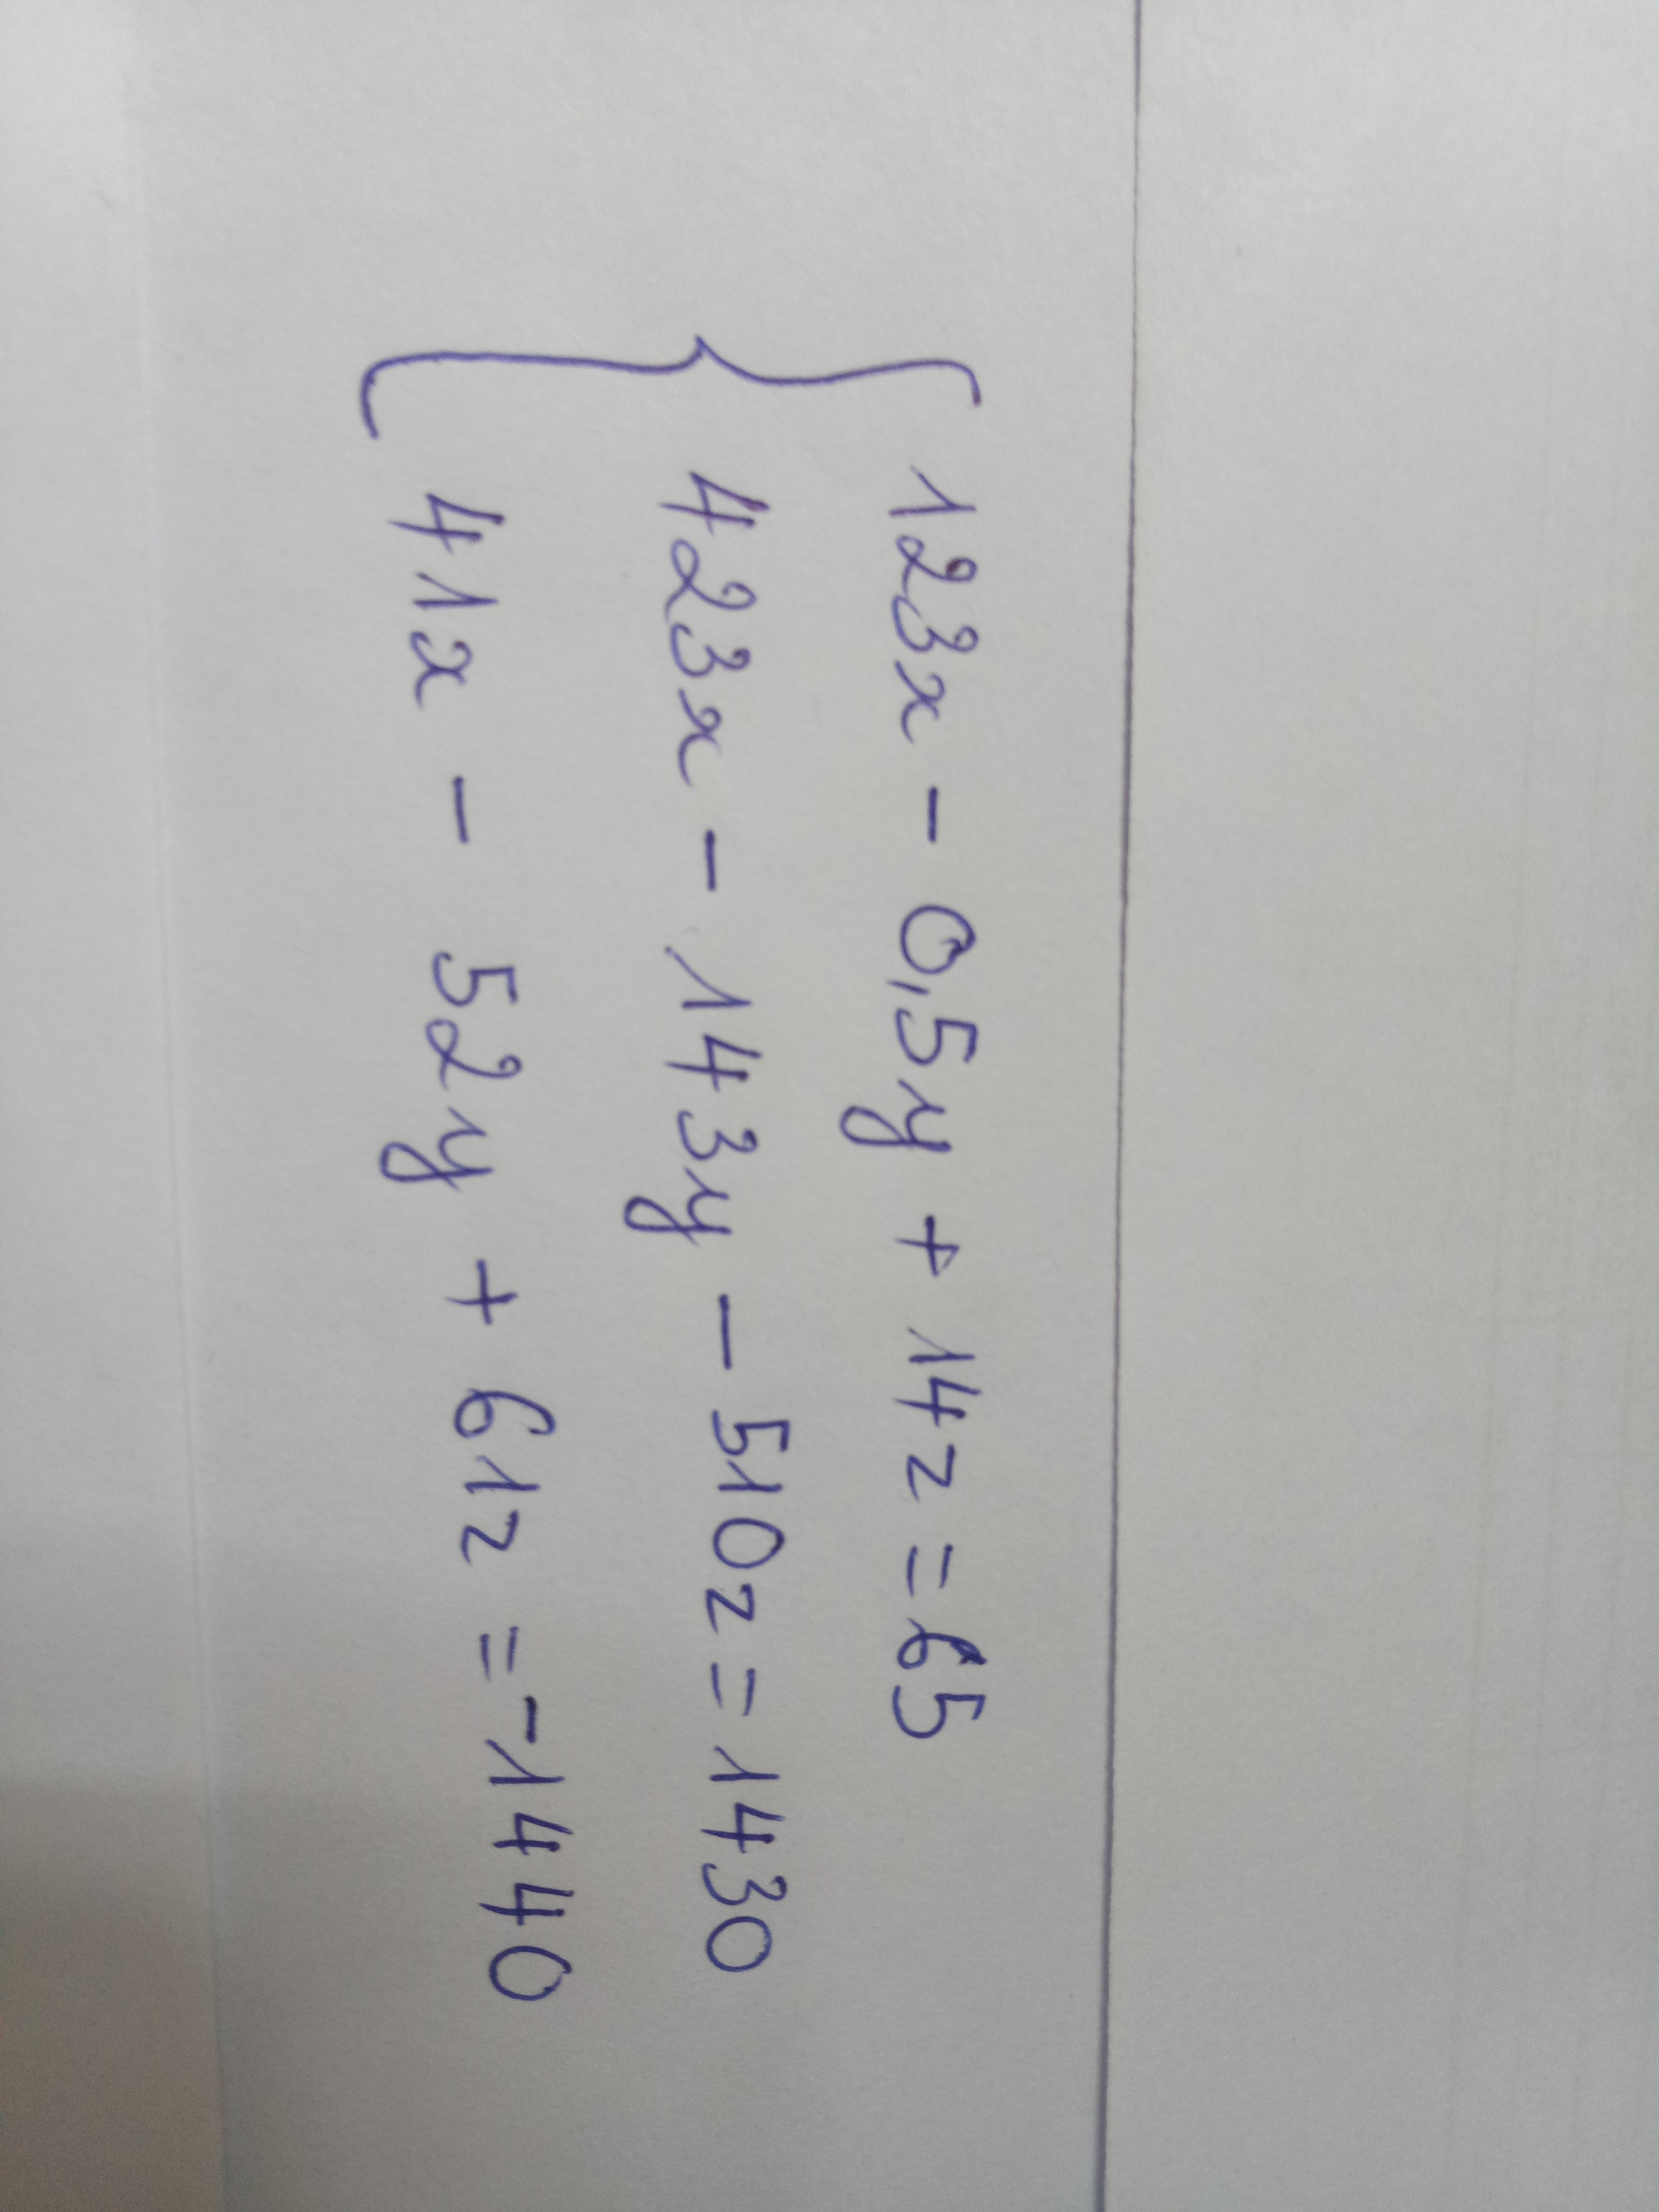 123x - 0,5y + 14z = 65
423x - 143y - 510z = 1430
41x - 52y + 61z = -1440